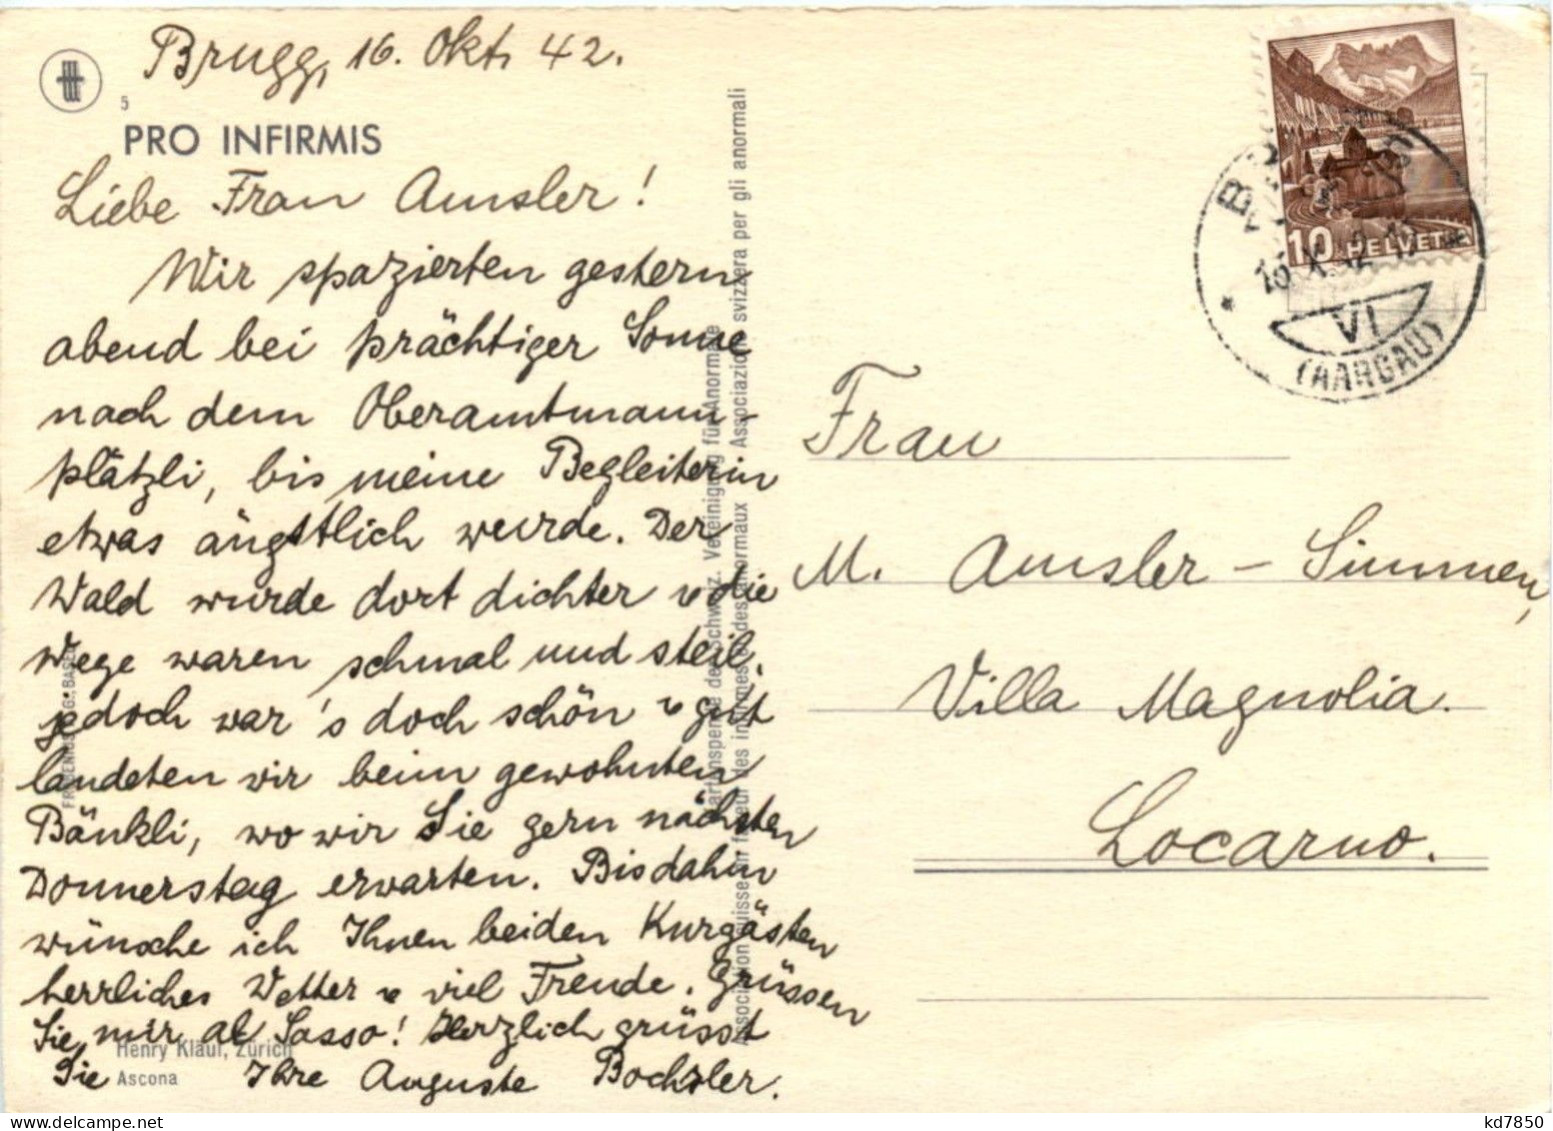 Brugg, 16. Okt. 42.
5
PRO INFIRMIS
Liebe Frau Amsler!
Wir spazierten gestern
abend bei prächtiger Sonne
nach dem Oberamtmann-
plätzli, bis meine Begleiterin
etwas ängstlich wurde. Der
Wald wurde dort dichter u die
Wege waren schmal und steil,
jedoch war's doch schön u gut
landeten wir beim gewohnten
Bänkli, wo wir Sie gern nächsten
Donnerstag erwarten. Bis dahin
wünsche ich Ihnen beiden Kurgästen
herrliches Wetter u viel Freude. Grüssen
Sie mir al Sasso! Herzlich grüsst
Sie Ihre Auguste
Henry Klauf, Zürich
Ascona
Kartenspende der Schweiz. Vereinigung für Anormale
Association suisse en faveur des infirmes et des anormaux Associazione svizzera per gli anormali
10 HELVETIA
VI
(AARGAU)
Frau
M. Amsler-Simmen,
Villa Magnolia.
Locarno.
kd7850